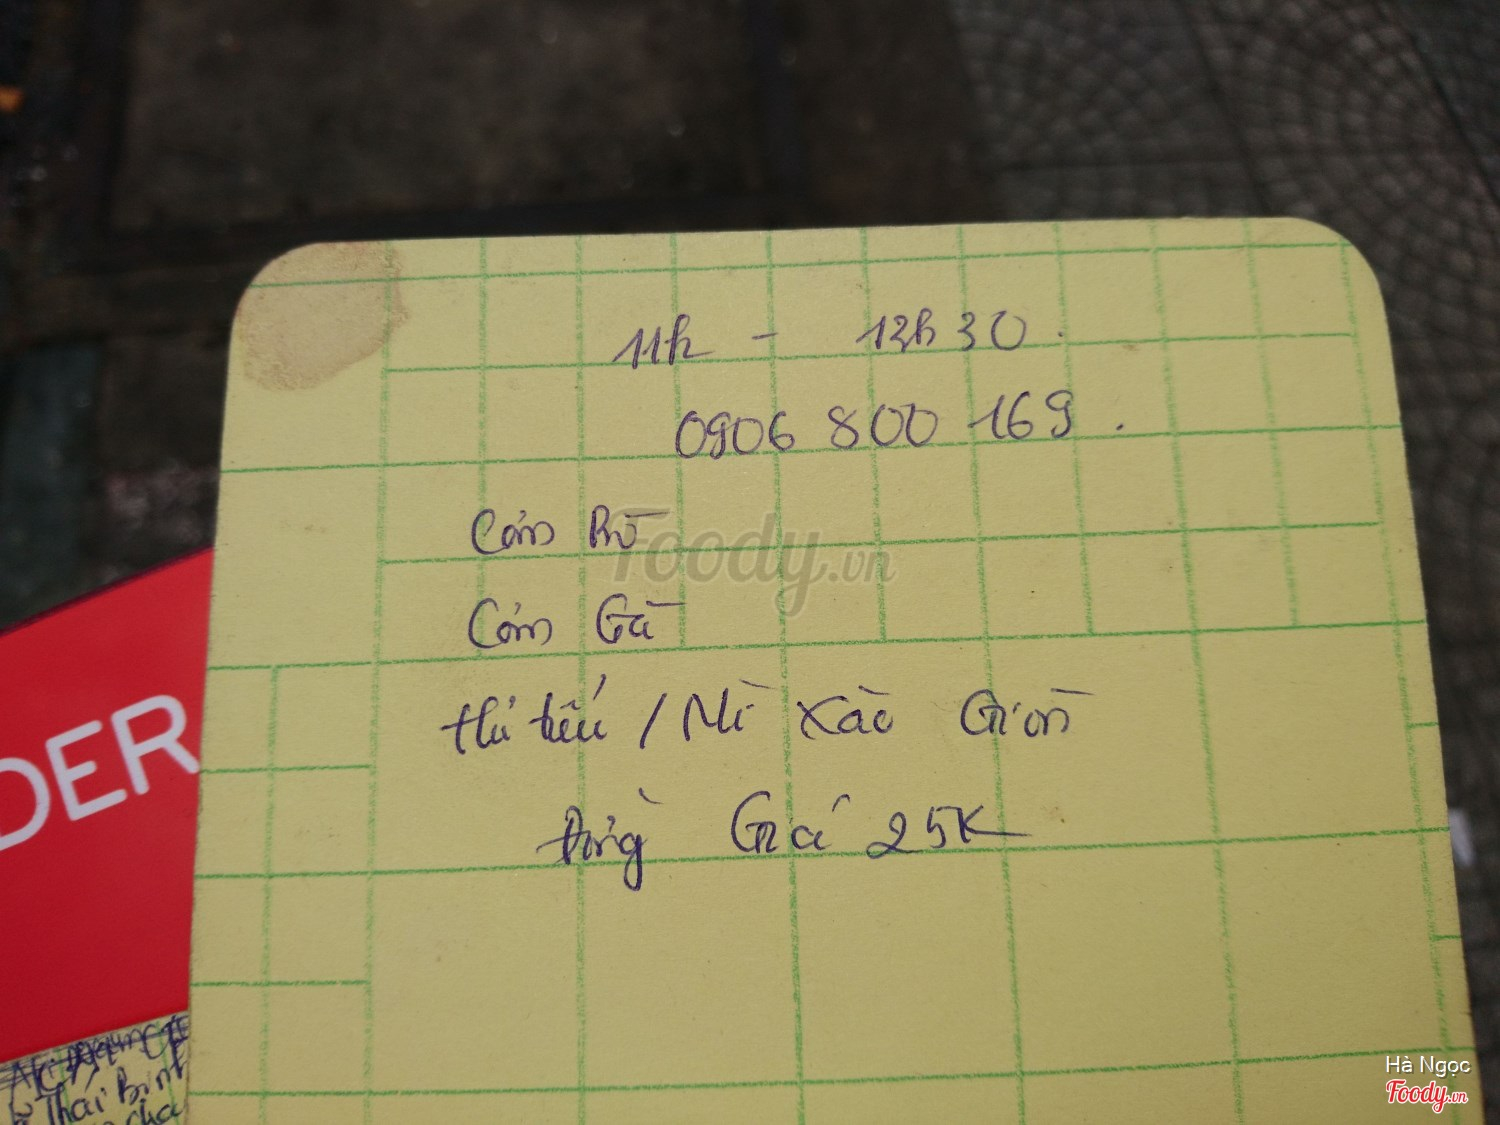 11h - 12h30.
0906 800 169.
Cơm Bò
Cơm Gà
Hủ tiếu / Mì xào Giòn
Đồng Giá 25K
Foody.vn
DER
Thái Bình
Hà Ngọc
Foody.vn